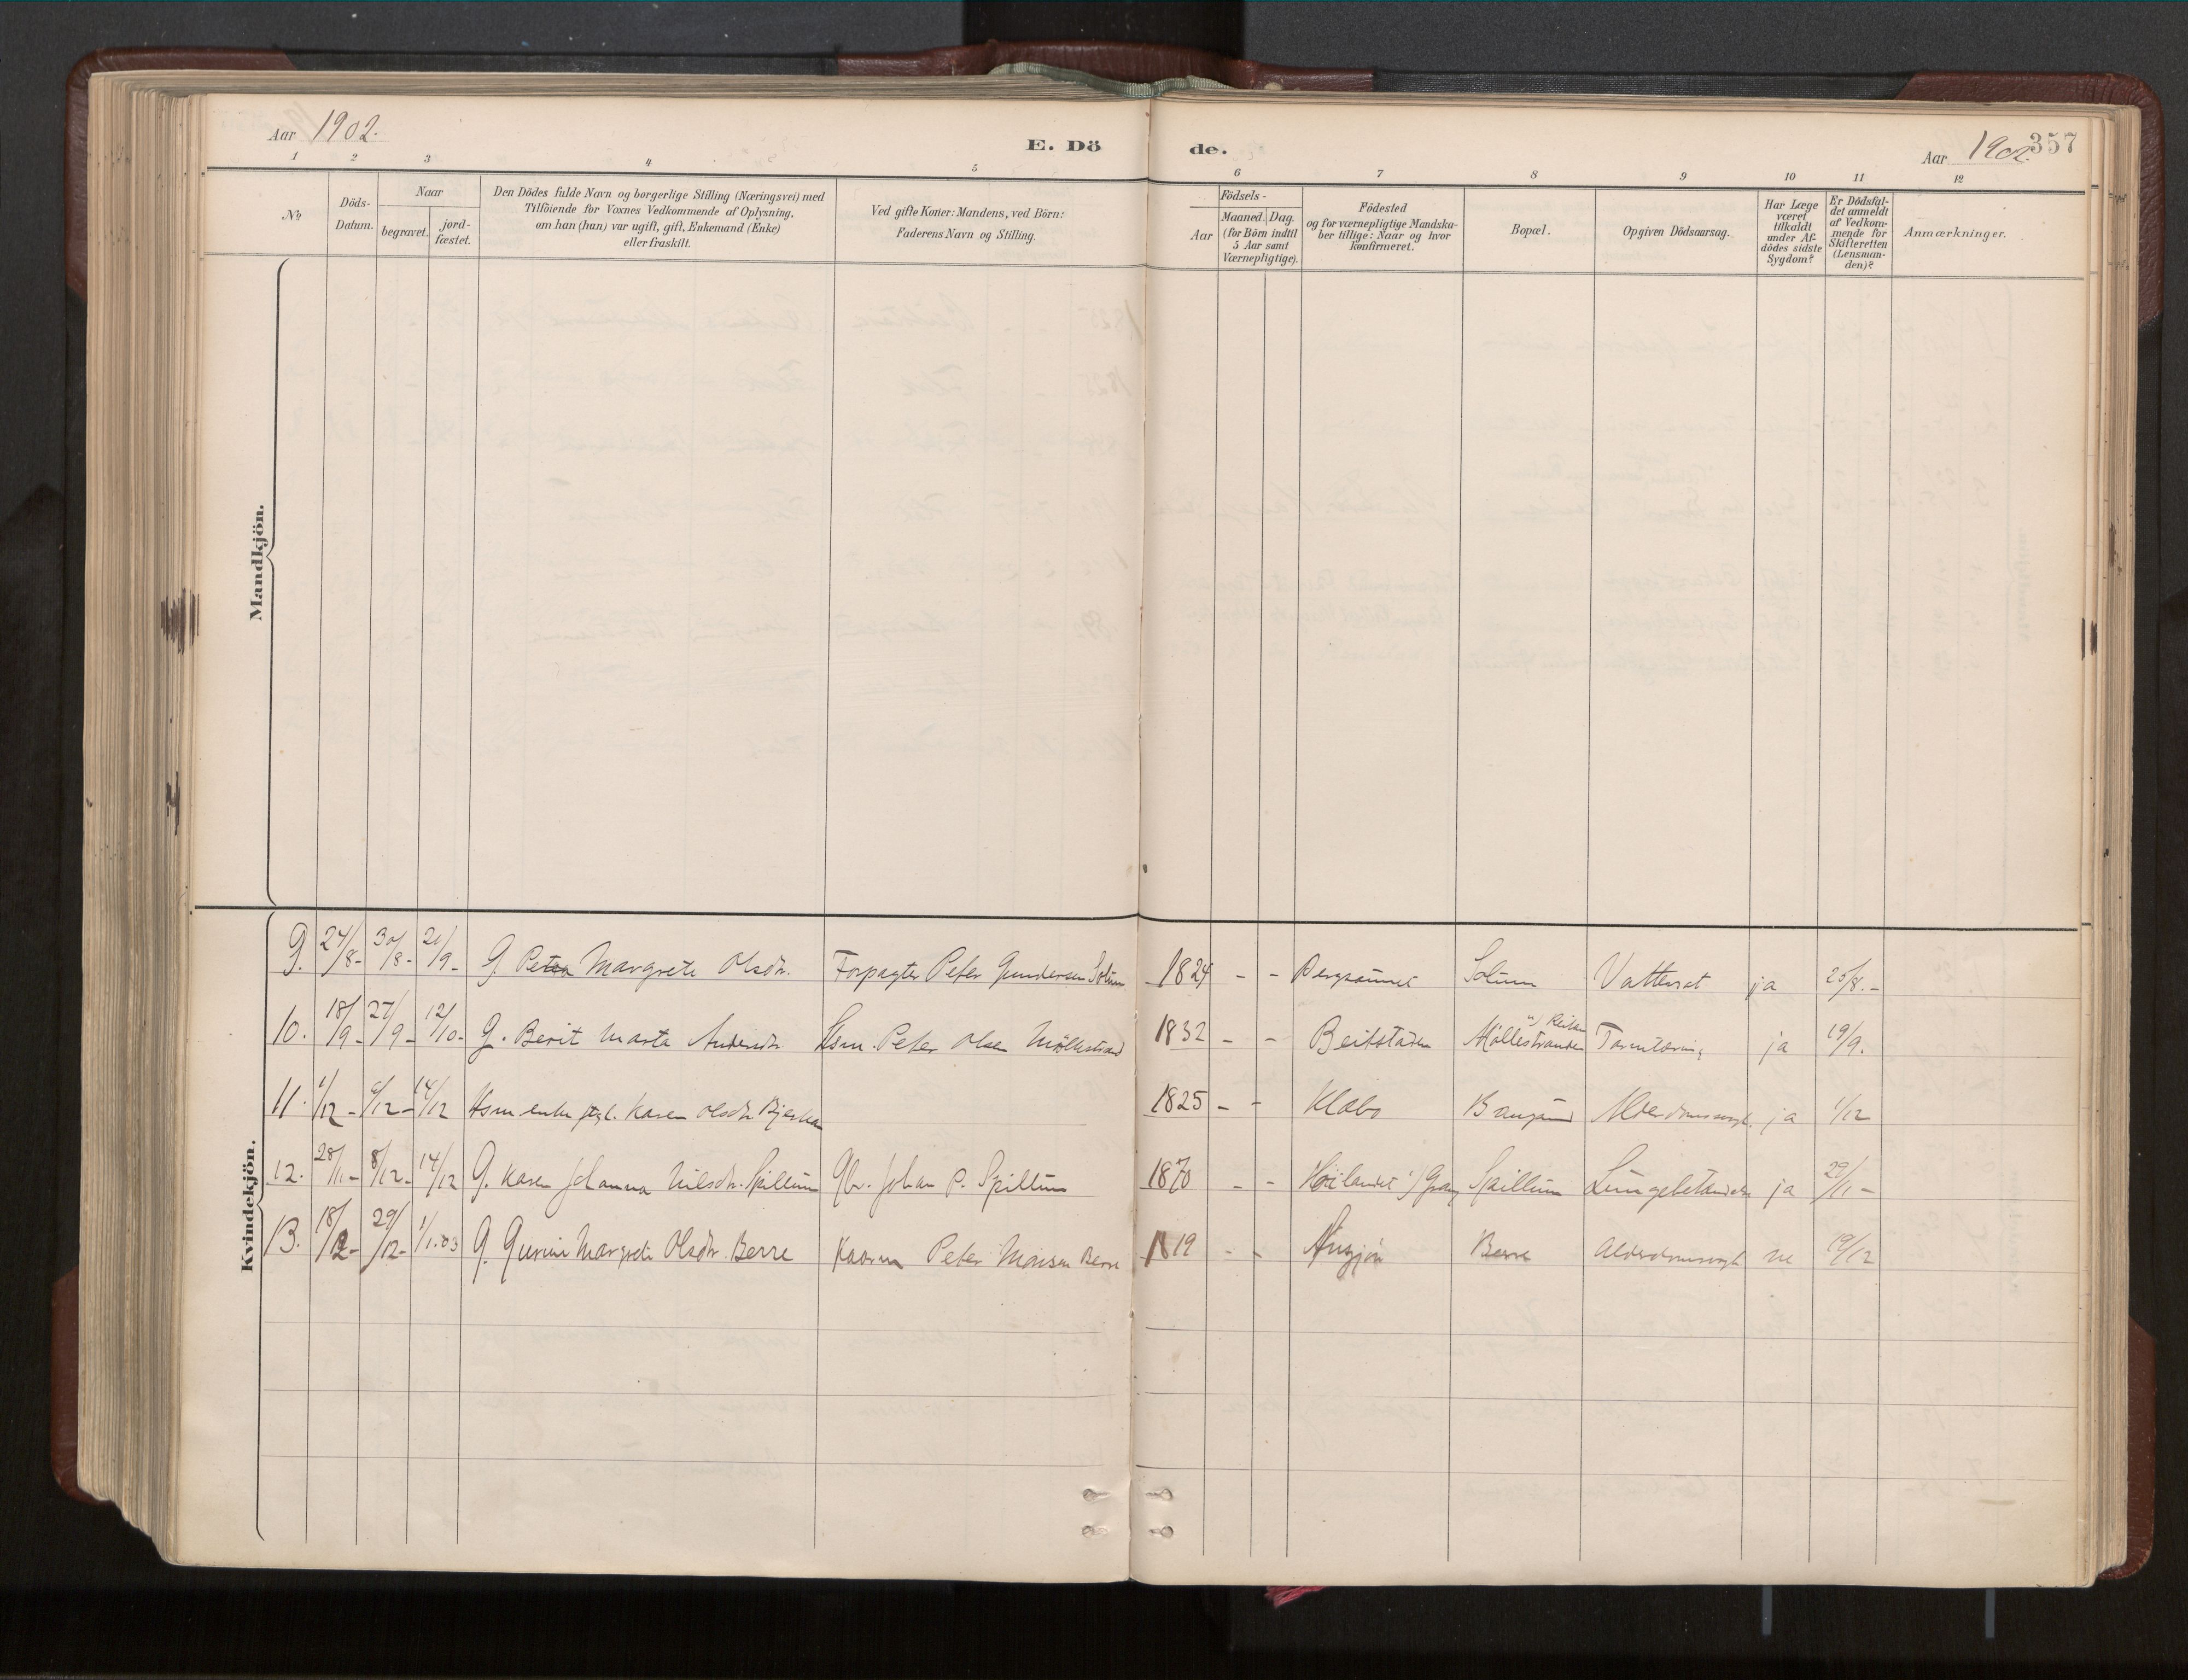 Aar 1902.
E. Dö
de.
Aar 1902.
357
1 2 3 4 5 6 7 8 9 10 11 12
No
Döds-
Datum.
Naar
begravet.
jord-
fæstet.
Den Dödes fulde Navn og borgerlige Stilling (Næringsvei) med
Tilföiende for Voxnes Vedkommende af Oplysning,
om han (hun) var ugift, gift, Enkemand (Enke)
eller fraskilt.
Ved gifte Koner: Mandens, ved Börn:
Faderens Navn og Stilling.
Födsels-
Aar
Maaned. Dag.
(for Börn indtil
5 Aar samt
Værnepligtige).
Födested
og for værnepligtige Mandska-
ber tillige: Naar og hvor
konfirmeret.
Bopæl.
Opgiven Dödsaarsag.
Har Læge
været
tilkaldt
under Af-
dödes sidste
Sygdom?
Er Dödsfal-
det anmeldt
af Vedkom-
mende for
Skifteretten
(Lensman-
den)?
Anmærkninger.
Mandkjön.
Kvindekjön.
9. 24/8- 30/8- 21/9- G Petra Margrete Olsdtr. Forpagter Peter Gundersen Solum 1824 - - Solum Vattersot ja 25/8.-
10. 18/9- 27/9- 12/10- G. Berit Marta Andersdtr. Hsm. Peter Olsen Möllestrand 1832 - - Beitstaden Möllestranden ja 19/9.
11. 1/12- 6/12- 14/12 Hsm enke Karen Olsdtr. 1825 - - Klæbo Bangsund Alderdomssvagh. ja 1/12
12. 28/11- 8/12- 14/12 G. Karen Johanna Nilsdtr. Spillum Gbr. Johan P. Spillum 1870 - - Höilandet Spillum Lungebetændelse ja 29/11-
13. 18/12- 29/12- 1/1.03 G. Gurine Margrete Olsdtr. Berre Kaarm Peter Monsen Berre 1819 - - Berre Alderdomssvagh ne 19/12